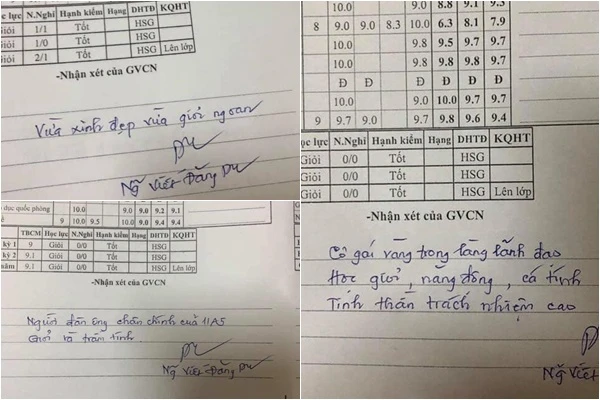 ọc lực N.Nghỉ Hạnh kiểm Hạng DHTĐ KQHT
Giỏi 1/1 Tốt HSG
Giỏi 1/0 Tốt HSG
Giỏi 2/1 HSG Lên lớp
-Nhận xét của GVCN
Vừa xinh đẹp vừa giỏi ngoan
Ng Viết Đăng Du
10.0 9.0 8.8 9.1 9.3
8 9.0 9.0 8.3 10.0 6.3 8.1 7.9
10.0 9.8 9.5 9.7 9.7
10.0 9.8 9.7 9.7 9.7
Đ Đ Đ Đ Đ
10.0 9.0 10.0 9.7 9.7
9 9.7 9.0 9.7 9.8 9.6 9.4
ọc lực N.Nghỉ Hạnh kiểm Hạng DHTĐ KQHT
Giỏi 0/0 Tốt HSG
Giỏi 0/0 Tốt HSG
Giỏi 0/0 Tốt HSG Lên lớp
-Nhận xét của GVCN
Cô gái vàng trong làng lãnh đạo
Học giỏi, năng động, cá tính
Tinh thần trách nhiệm cao
Ng Viết
dục quốc phòng 10.0 9.0 9.0 9.2 9.1
9 10.0 9.5 9.0 9.0 9.4 9.4
TBCM Học lực N.Nghỉ Hạnh kiểm Hạng DHTĐ KQHT
kỳ 1 9 Giỏi 0/0 Tốt HSG
kỳ 2 9.1 Giỏi 0/0 Tốt HSG
năm 9.1 Giỏi 0/0 Tốt HSG Lên lớp
-Nhận xét của GVCN
Người đàn ông chân chính của 11A5
Giỏi và trầm tính.
Ng Viết Đăng Du